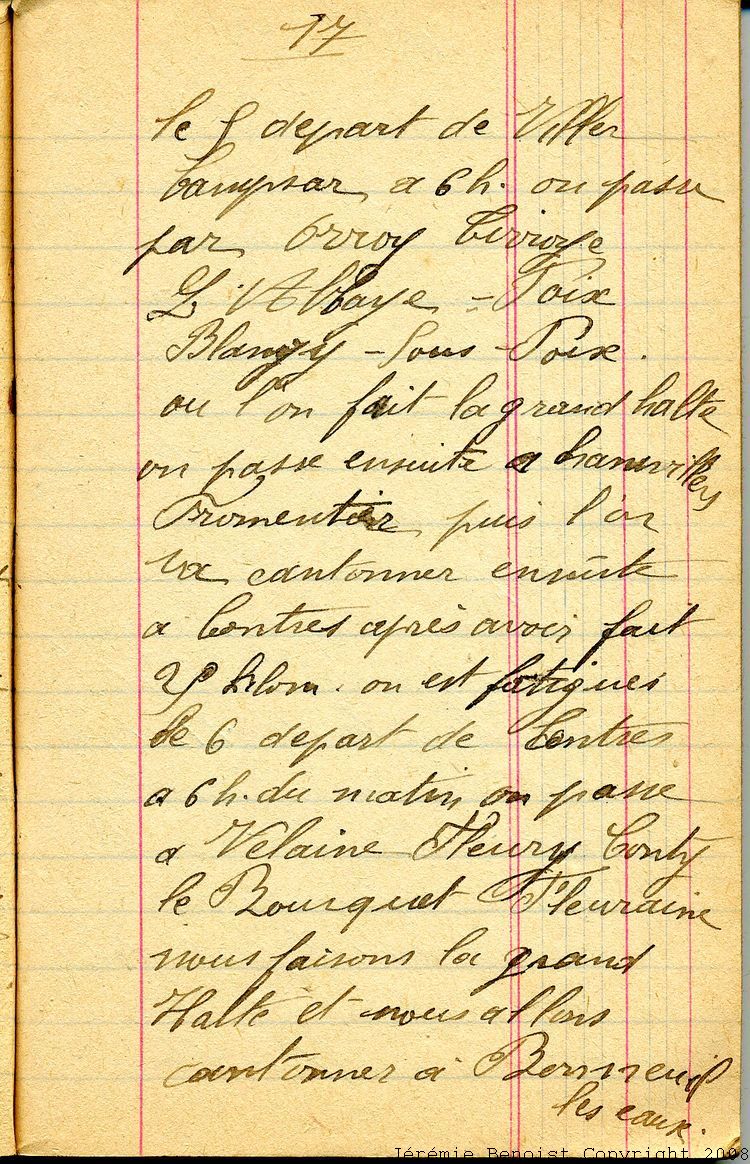 17
le 5 depart de Viller
Campsar a 6 h. on passe
par Orroy Civroye
L'Abbaye - Poix
Blangy - Sous - Poix.
ou l'on fait la grand halte
on passe ensuite a
Fromentier puis l'on
va cantonner ensuite
a Contres après avoir fait
25 kilom. on est fatigues
Le 6 depart de Contres
a 6 h. du matin, on passe
a Velaine Fleury Conty
le Bousquet Fleuraine
nous faisons la grand
Halte et nous allons
cantonner à Bonneuil
les eaux.
Jérémie Benoist Copyright 2008